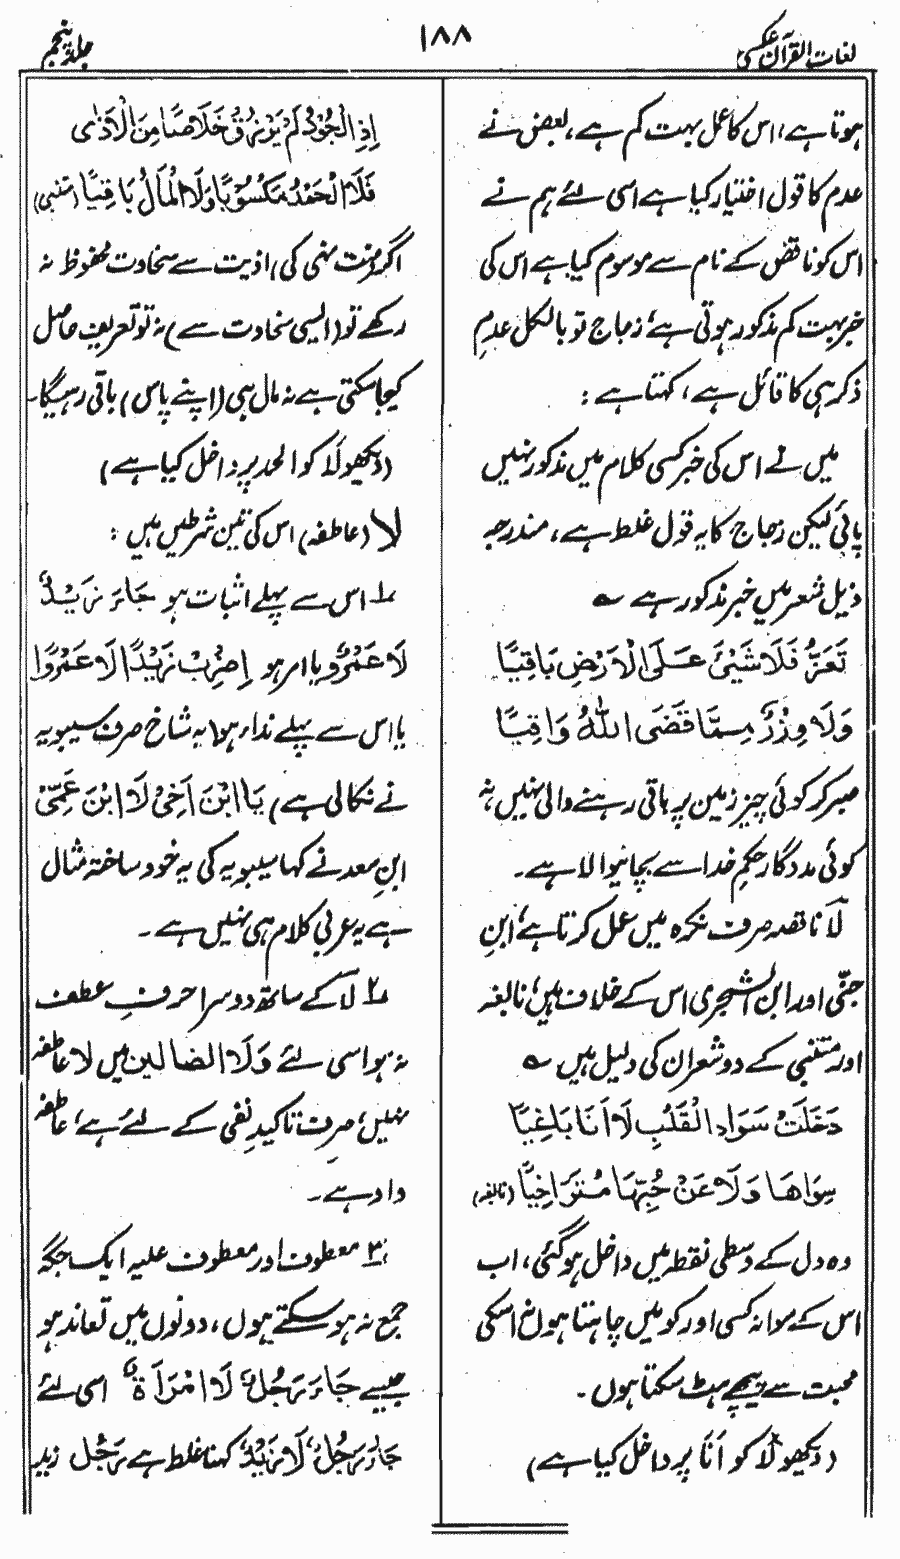 لغات القرآن عکسی
۱۸۸
جلد پنجم
ہوتا ہے، اس کا عمل بہت کم ہے، بعض نے
عدم کا قول اختیار کیا ہے اسی لئے ہم نے
اس کو ناقص کے نام سے موسوم کیا ہے اس کی
خبر بہت کم مذکور ہوتی ہے، زجاج تو بالکل عدمِ
ذکر ہی کا قائل ہے، کہتا ہے :
میں نے اس کی خبر کسی کلام میں مذکور نہیں
پائی لیکن زجاج کا یہ قول غلط ہے، مندرجہ
ذیل شعر میں خبر مذکور ہے ؎
تَعَزَّ فَلَا شَیْئٌ عَلَی الْاَرْضِ بَاقِیًا
وَلَا وِزْرٌ مِمَّا قَضَی اللّٰہُ وَاقِیًا
صبر کر کوئی چیز زمین پر باقی رہنے والی نہیں نہ
کوئی مددگار حکمِ خدا سے بچانیوالا ہے۔
لَا ناقصہ صرف نکرہ میں عمل کرتا ہے، ابنِ
جنّی اور ابن الشجری اس کے خلاف ہیں، نابغہ
اور متنبی کے دو شعر ان کی دلیل ہیں ؎
دَخَلَتْ سَوَادَ الْقَلْبِ لَا اَنَا بَاغِیًا
سِوَاھَا وَلَا عَنْ حُبِّہَا مُتَرَاخِیًا (نابغہ)
وہ دل کے وسطی نقطہ میں داخل ہو گئی، اب
اس کے سوا نہ کسی اور کو میں چاہتا ہوں نہ اسکی
محبت سے پیچھے ہٹ سکتا ہوں۔
(دیکھو لَا کو اَنَا پر داخل کیا ہے)
اِذِ الْجُوْدُ لَمْ یُرْزَقْ خَلَاصًا مِنَ الْاَذٰی
فَلَا الْحَمْدُ مَکْسُوْبًا وَلَا الْمَالُ بَاقِیًا (متنبی)
اگر منت نہی کی اذیت سے سخاوت محفوظ نہ
رکھے تو (ایسی سخاوت سے) نہ تو تعریف حاصل
کیجا سکتی ہے نہ مال ہی (اپنے پاس) باقی رہیگا۔
(دیکھو لَا کو الحمد پر داخل کیا ہے)
لا (عاطفہ) اس کی تین شرطیں ہیں :
۱ اس سے پہلے اثبات ہو جَاءَ زَیْدٌ
لَا عَمْرٌو یا امر ہو اِضْرِبْ زَیْدًا لَا عَمْرًوا
یا اس سے پہلے نداء ہو (یہ شاخ صرف سیبویہ
نے نکالی ہے) یَا ابْنَ اَخِیْ لَا ابْنَ عَمِّیْ
ابنِ سعد نے کہا سیبویہ کی یہ خود ساختہ مثال
ہے یہ عربی کلام ہی نہیں ہے۔
۲ لا کے ساتھ دوسرا حرفِ عطف
نہ ہو اسی لئے وَلَا الضالین میں لا عاطفہ
نہیں، صرف تاکیدِ نفی کے لئے ہے، عاطفہ
واو ہے۔
۳ معطوف اور معطوف علیہ ایک جگہ
جمع نہ ہو سکتے ہوں، دونوں میں تعاند ہو
جیسے جَاءَ رَجُلٌ لَا امْرَأَۃٌ اسی لئے
جَاءَ رَجُلٌ لَا زَیْدٌ کہنا غلط ہے رَجُل زید